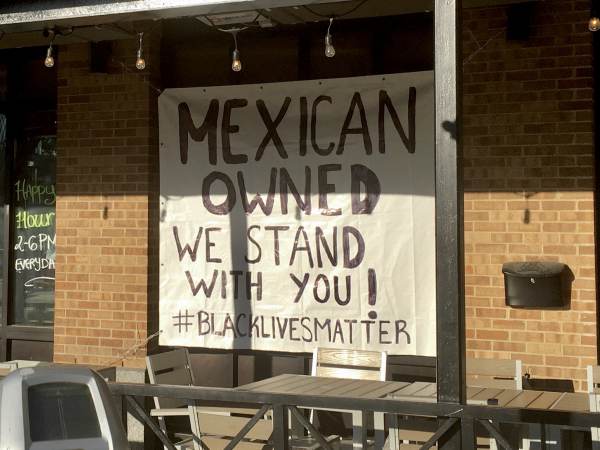 Happy
Hour
2-6PM
EVERYDA
MEXICAN
OWNED
WE STAND
WITH YOU!
#BLACKLIVESMATTER